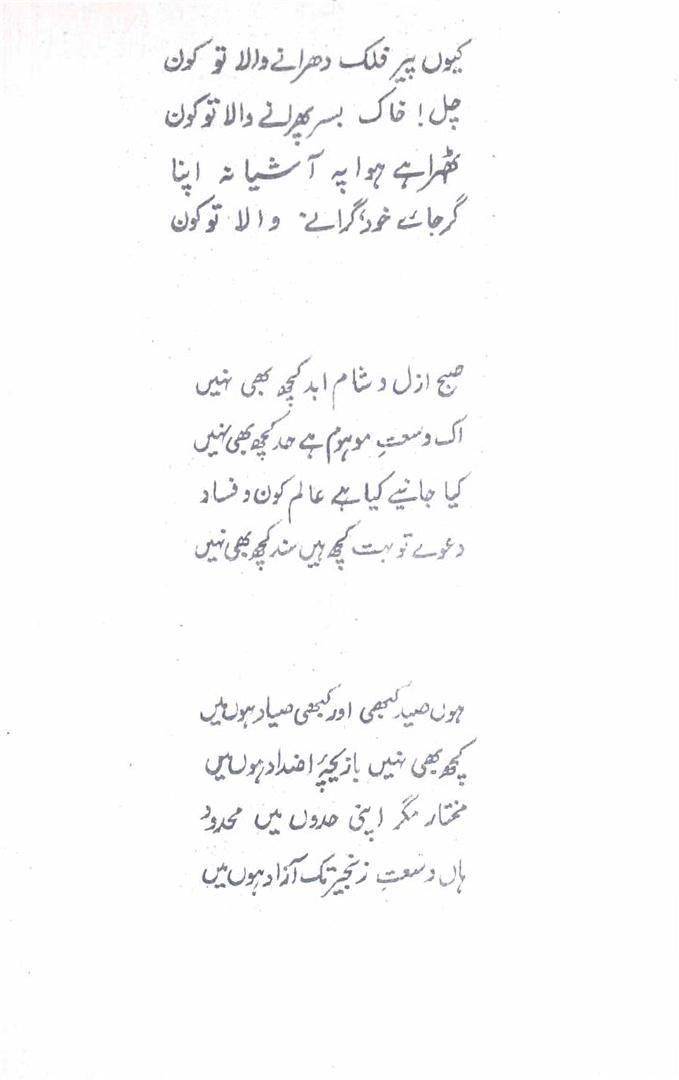 کیوں پیر فلک دھرانے والا تو کون
چل! خاک بسر پھرانے والا تو کون
ٹھہرا ہے ہوا پہ آشیانہ اپنا
گر جائے خود، گرانے والا تو کون
صبح ازل و شام ابد کچھ بھی نہیں
اک وسعتِ موہوم ہے حد کچھ بھی نہیں
کیا جانیے کیا ہے عالم کون و فساد
دعوے تو بہت کچھ ہیں سند کچھ بھی نہیں
ہوں صید کبھی اور کبھی صیاد ہوں میں
کچھ بھی نہیں بازیچۂ اضداد ہوں میں
مختار مگر اپنی حدوں میں محدود
ہاں وسعتِ زنجیر تک آزاد ہوں میں